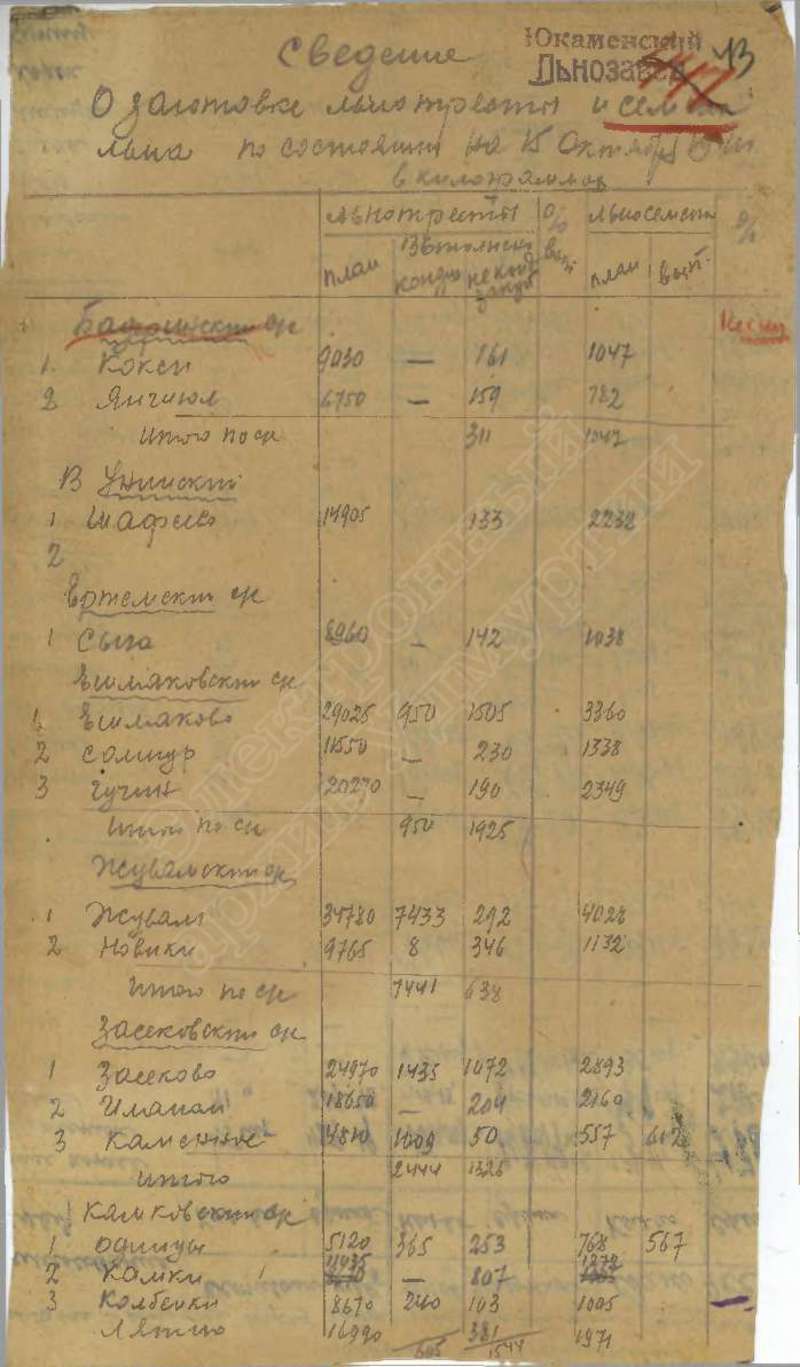 Юкаменский
Льнозавод 13
Сведение
О заготовке льнотресты и семян
льна по состоянию на 15 Октября
в килограммах
льнотресты % льносемени %
план Выполнено вып план вып.
конди некон
Кокси 9030 — 161 1047
1
2 Янгиюл 6750 — 159 782
Итого по ср 311 1047
В Унинский
1 Шафеево 14905 133 2232
2
Ертемский ср
1 Сыга 8960 — 142 1038
Ешмаковский ср
1 Ешмаково 29025 950 1505 3360
2 Солигур 11550 — 230 1338
3 Гучин 20270 — 190 2349
Итого по ср 950 1925
Жувамский ср
1 Жувам 34780 7433 292 4028
2 Новики 9765 8 346 1132
Итого по ср 7441 638
Засековский ср
1 Засеково 24970 1435 1072 2893
2 Иманай 18650 — 204 2160
3 Каменное 4810 1009 50 557 612
Итого 2444 1326
Камковский ср
1 Одинцы 5120 365 253 768 567
2 Камки — 807
3 Колбенки 8670 240 103 1005
Лятино 16990 381 1971
605 1544